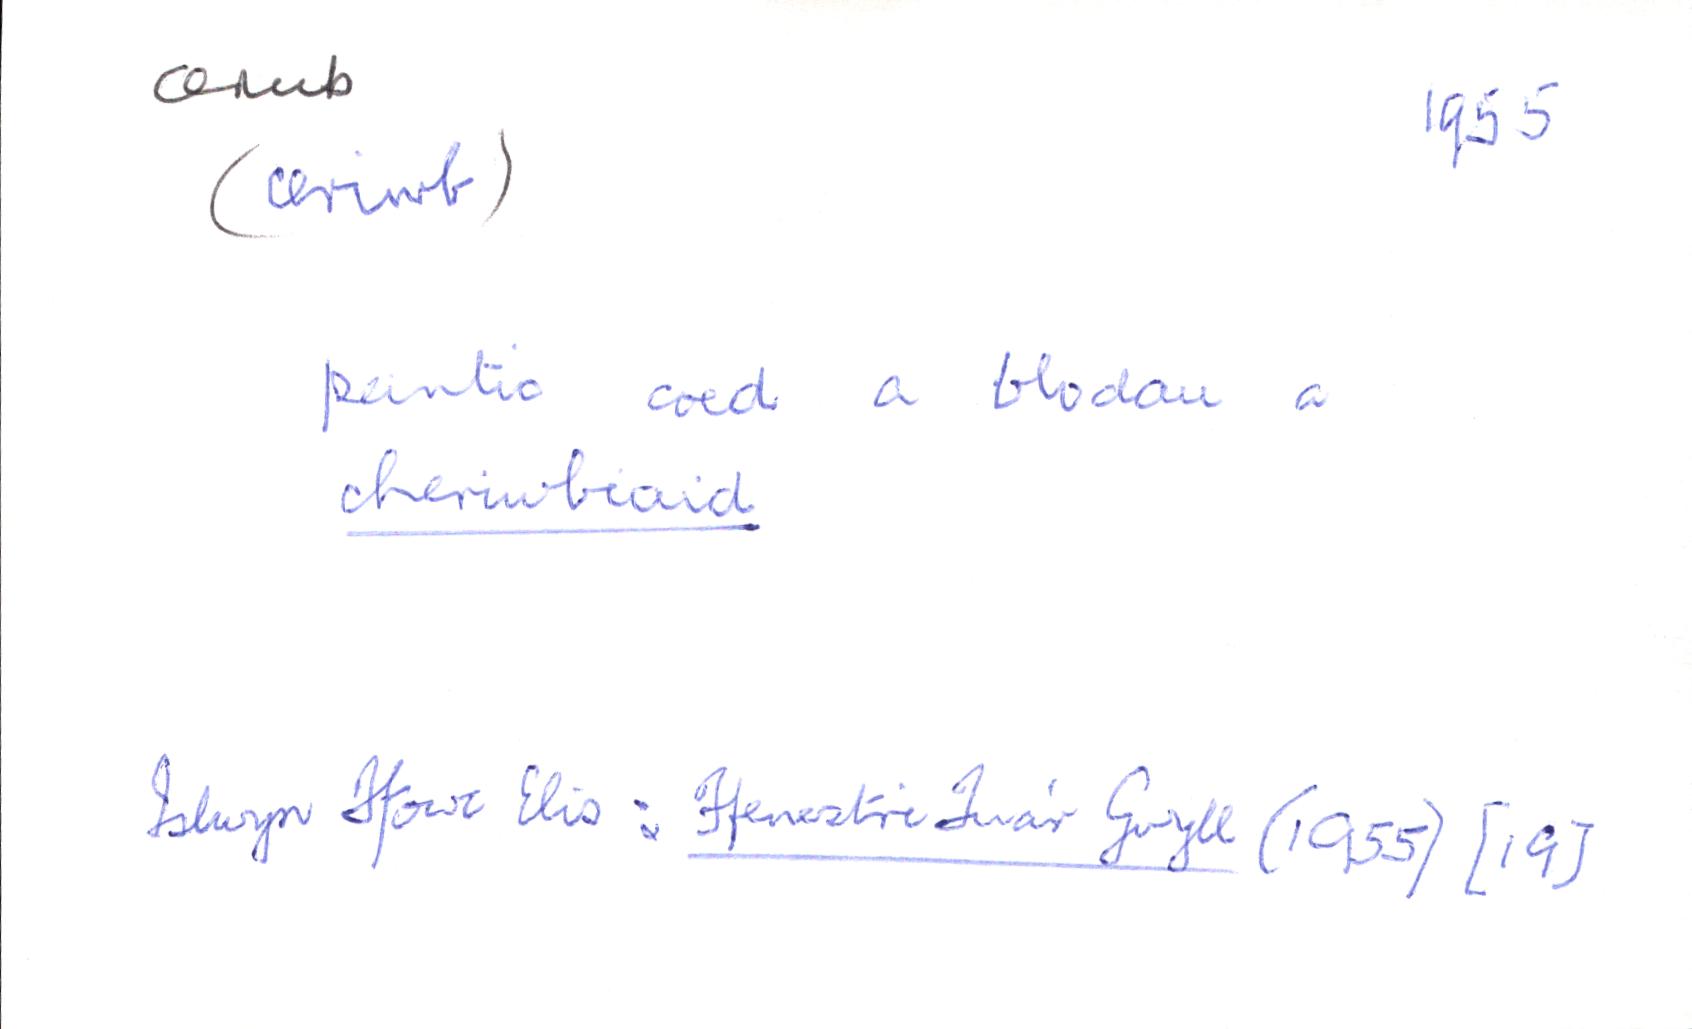 cerub
1955
(ceriwb)
peintio coed a blodau a
cheriwbiaid
Islwyn Ffowc Elis : Ffenestri Tua'r Gwyll (1955) [19]